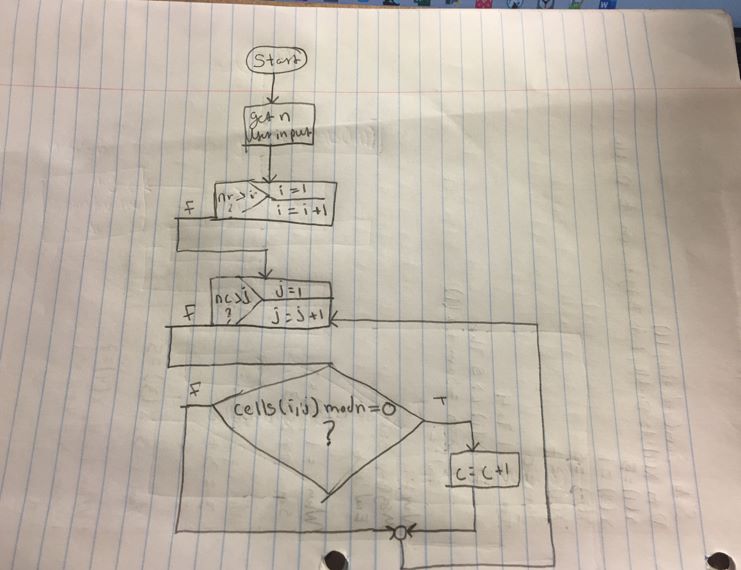 Start
get n
user input
nr>i
?
i=1
i=i+1
F
nc>j
?
j=1
j=j+1
F
F
cells(i,j) mod n=0
?
T
c=c+1